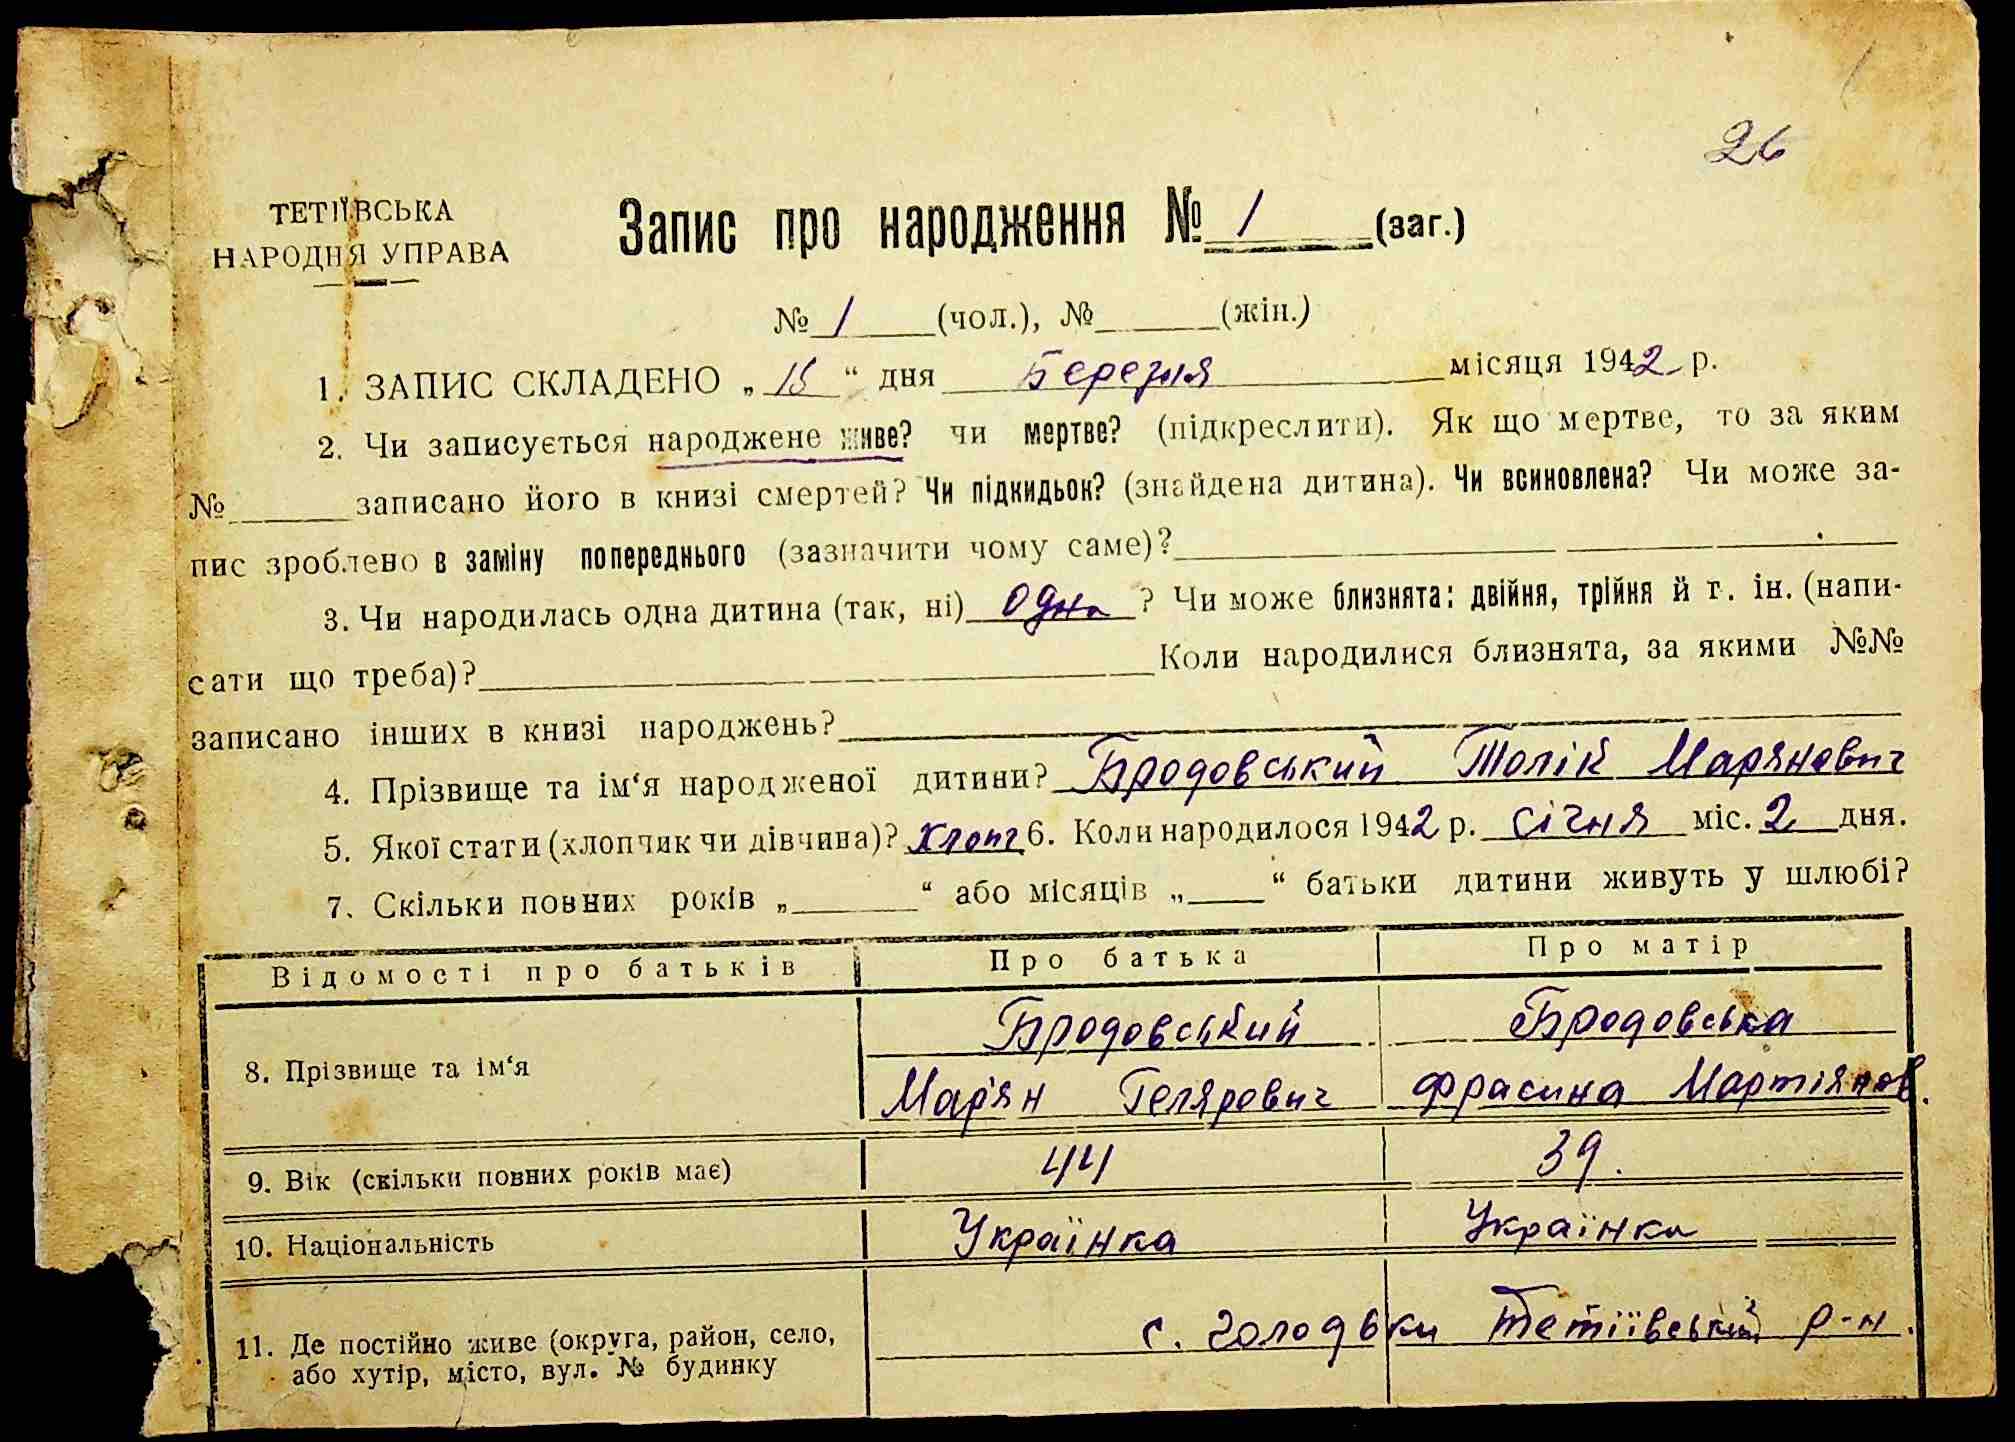 26
ТЕТІЇВСЬКА
НАРОДНЯ УПРАВА
Запис про народження № 1 (заг.)
№ 1 (чол.), № (жін.)
1. ЗАПИС СКЛАДЕНО „15“ дня Березня місяця 1942 р.
2. Чи записується народжене живе? чи мертве? (підкреслити). Як що мертве, то за яким
№ записано його в книзі смертей? Чи підкидьок? (знайдена дитина). Чи всиновлена? Чи може за-
пис зроблено в заміну попереднього (зазначити чому саме)?
3. Чи народилась одна дитина (так, ні) одна ? Чи може близнята: двійня, трійня й т. ін. (напи-
сати що треба)? Коли народилися близнята, за якими №№
записано інших в книзі народжень?
4. Прізвище та ім‘я народженої дитини? Бродовський Толік Марянович
5. Якої стати (хлопчик чи дівчина)? хлопч 6. Коли народилося 1942 р. січня міс. 2 дня.
7. Скільки повних років „ “ або місяців „ “ батьки дитини живуть у шлюбі?
Відомості про батьків Про батька Про матір
Бродовський Бродовська
8. Прізвище та ім‘я
Мар'ян Гелярович Фрасина Мартіянов.
9. Вік (скільки повних років має) 44 39.
10. Національність Українка Українка
11. Де постійно живе (округа, район, село, с. Голодьки Тетіївський р-н.
або хутір, місто, вул. № будинку